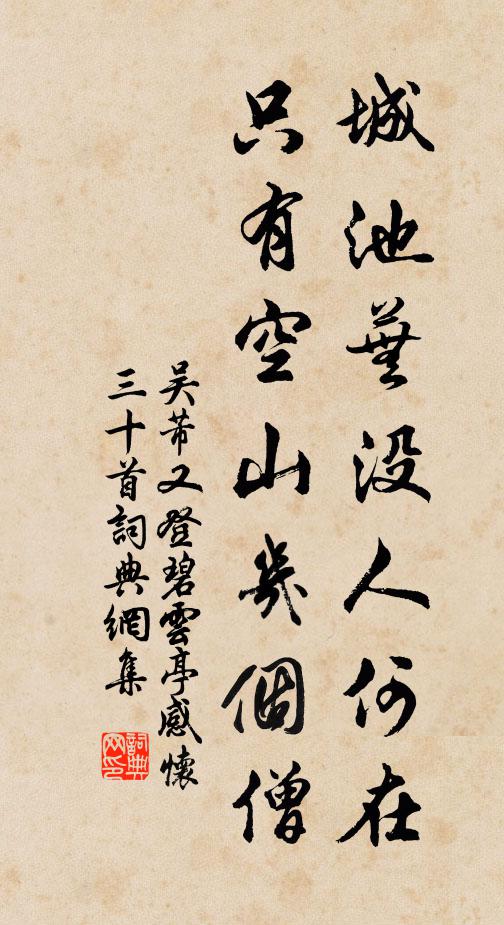 城池蕪没人何在
只有空山幾個僧
吴芾又登碧雲亭感懷
三十首詞典網集
詞典
网印